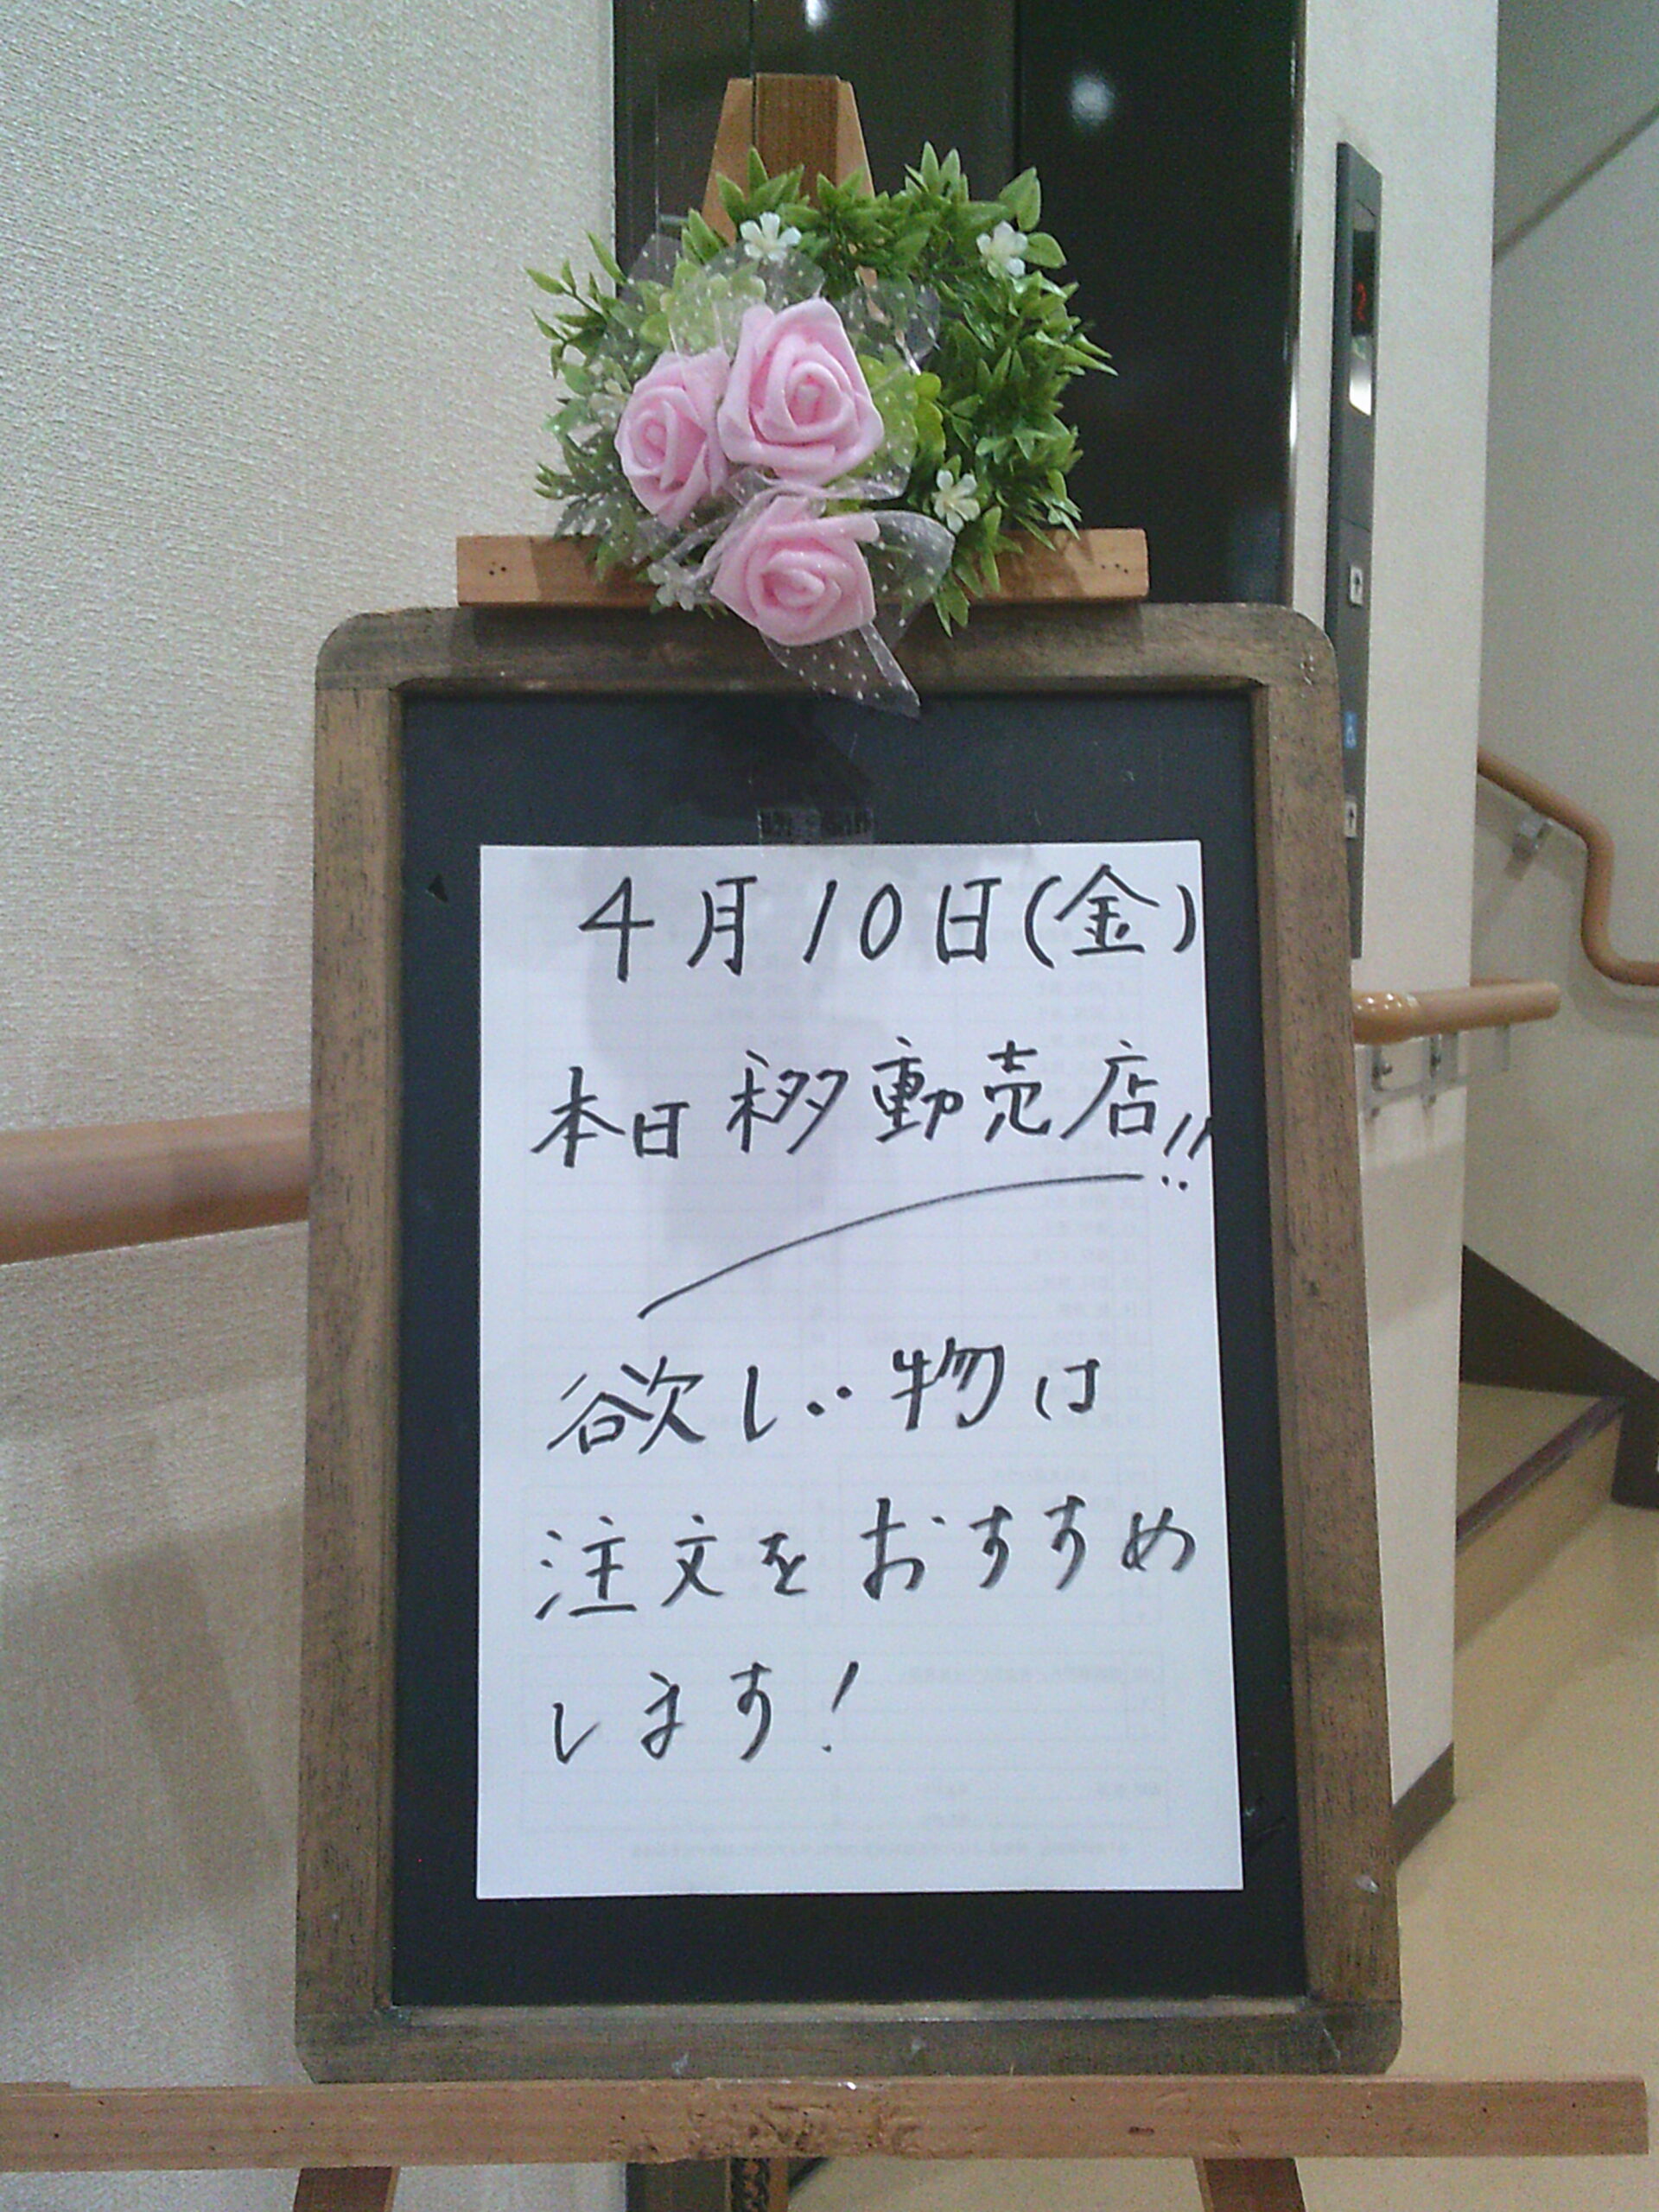 4月10日(金)
本日移動売店!!
欲しい物は
注文をおすすめ
します!
2